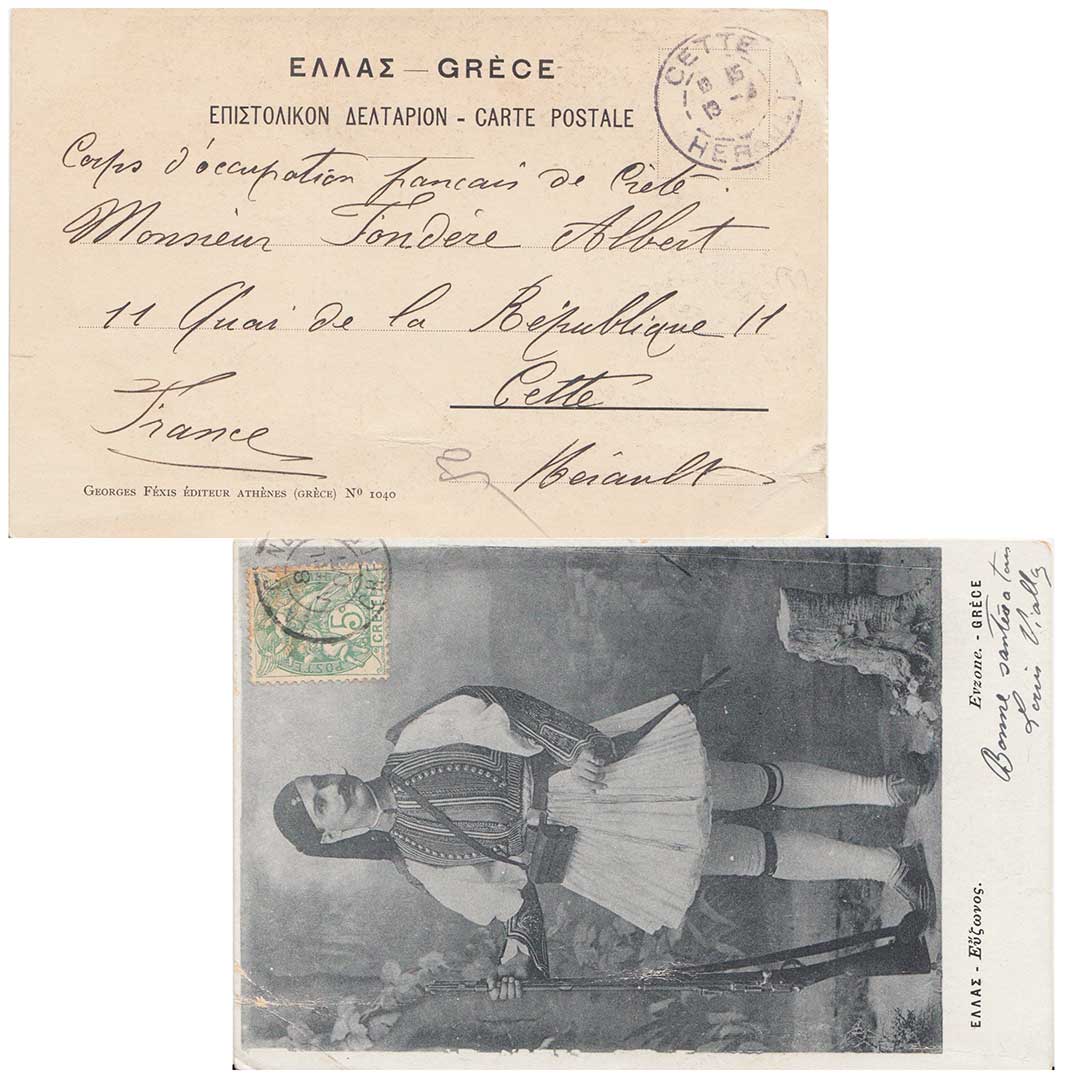 ΕΛΛΑΣ — GRÈCE
ΕΠΙΣΤΟΛΙΚΟΝ ΔΕΛΤΑΡΙΟΝ - CARTE POSTALE
CETTE
HERAULT
Corps d'occupation français de Crète.
Monsieur Fondère Albert
11 Quai de la République 11
Cette
France
Hérault
GEORGES FÉXIS ÉDITEUR ATHÈNES (GRÈCE) Nº 1040
5c
POSTES
CRETE
ΕΛΛΑΣ - Εὔζωνος.
Evzone. - GRÈCE
Bonne santée a tous
Louis Vialla